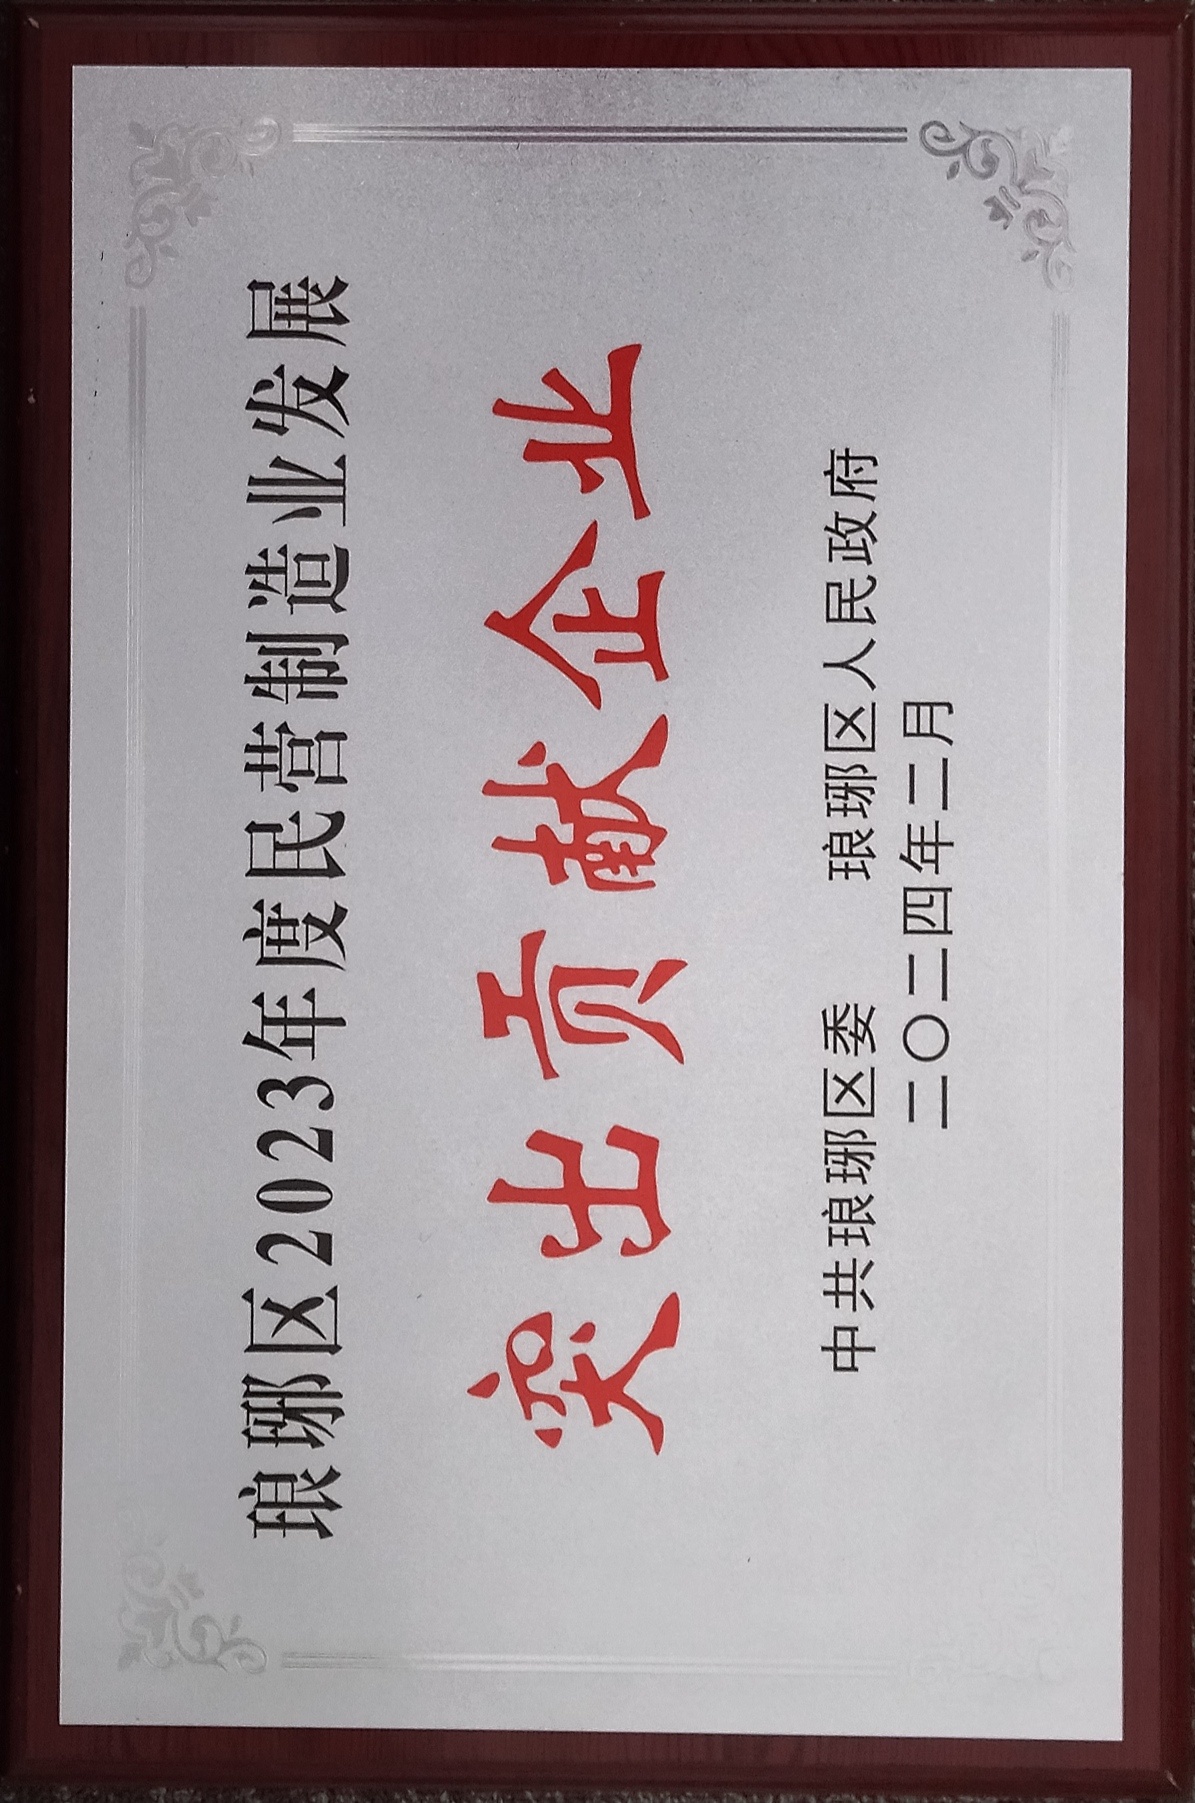 琅琊区2023年度民营制造业发展
突出贡献企业
中共琅琊区委 琅琊区人民政府
二〇二四年二月